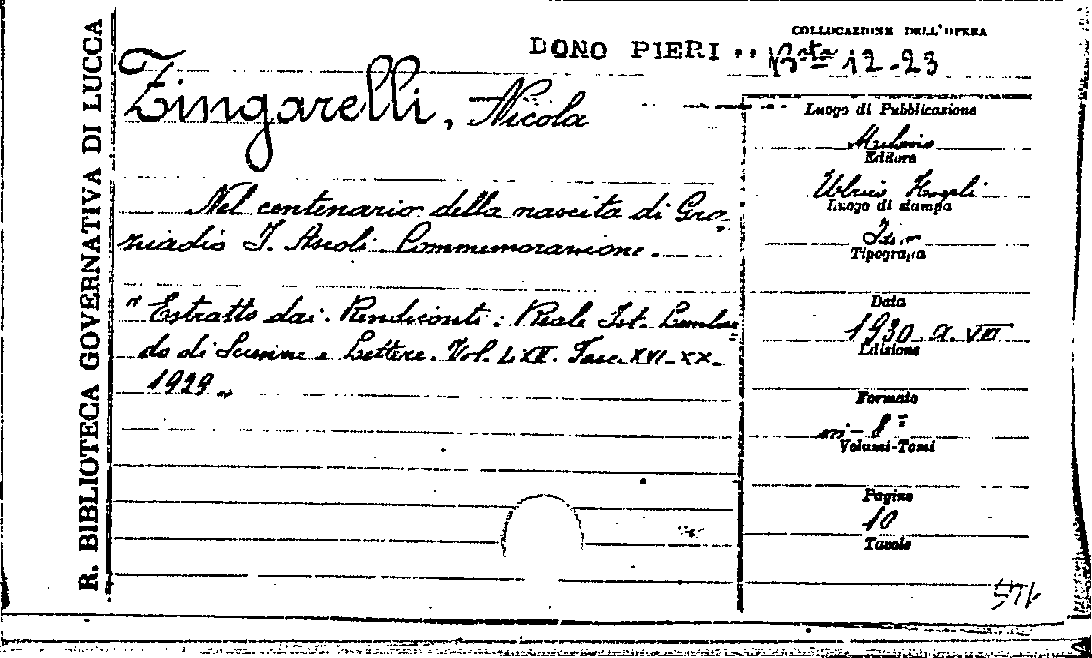 R. BIBLIOTECA GOVERNATIVA DI LUCCA
DONO PIERI
COLLOCAZIONE DELL'OPERA
Bta 12-23
Zingarelli, Nicola
Nel centenario della nascita di Gra-
ziadio I. Ascoli Commemorazione.
"Estratto dai Rendiconti: Reale Ist. Lombar-
do di Scienze e Lettere. Vol. LXII. Fasc. XVI-XX-
1929"
Luogo di Pubblicazione
Milano
Editore
Ulrico Hoepli
Luogo di stampa
Idem
Tipografia
Data
1930 - a. VIII
Edizione
Formato
in-8°
Volumi-Tomi
Pagine
10
Tavole